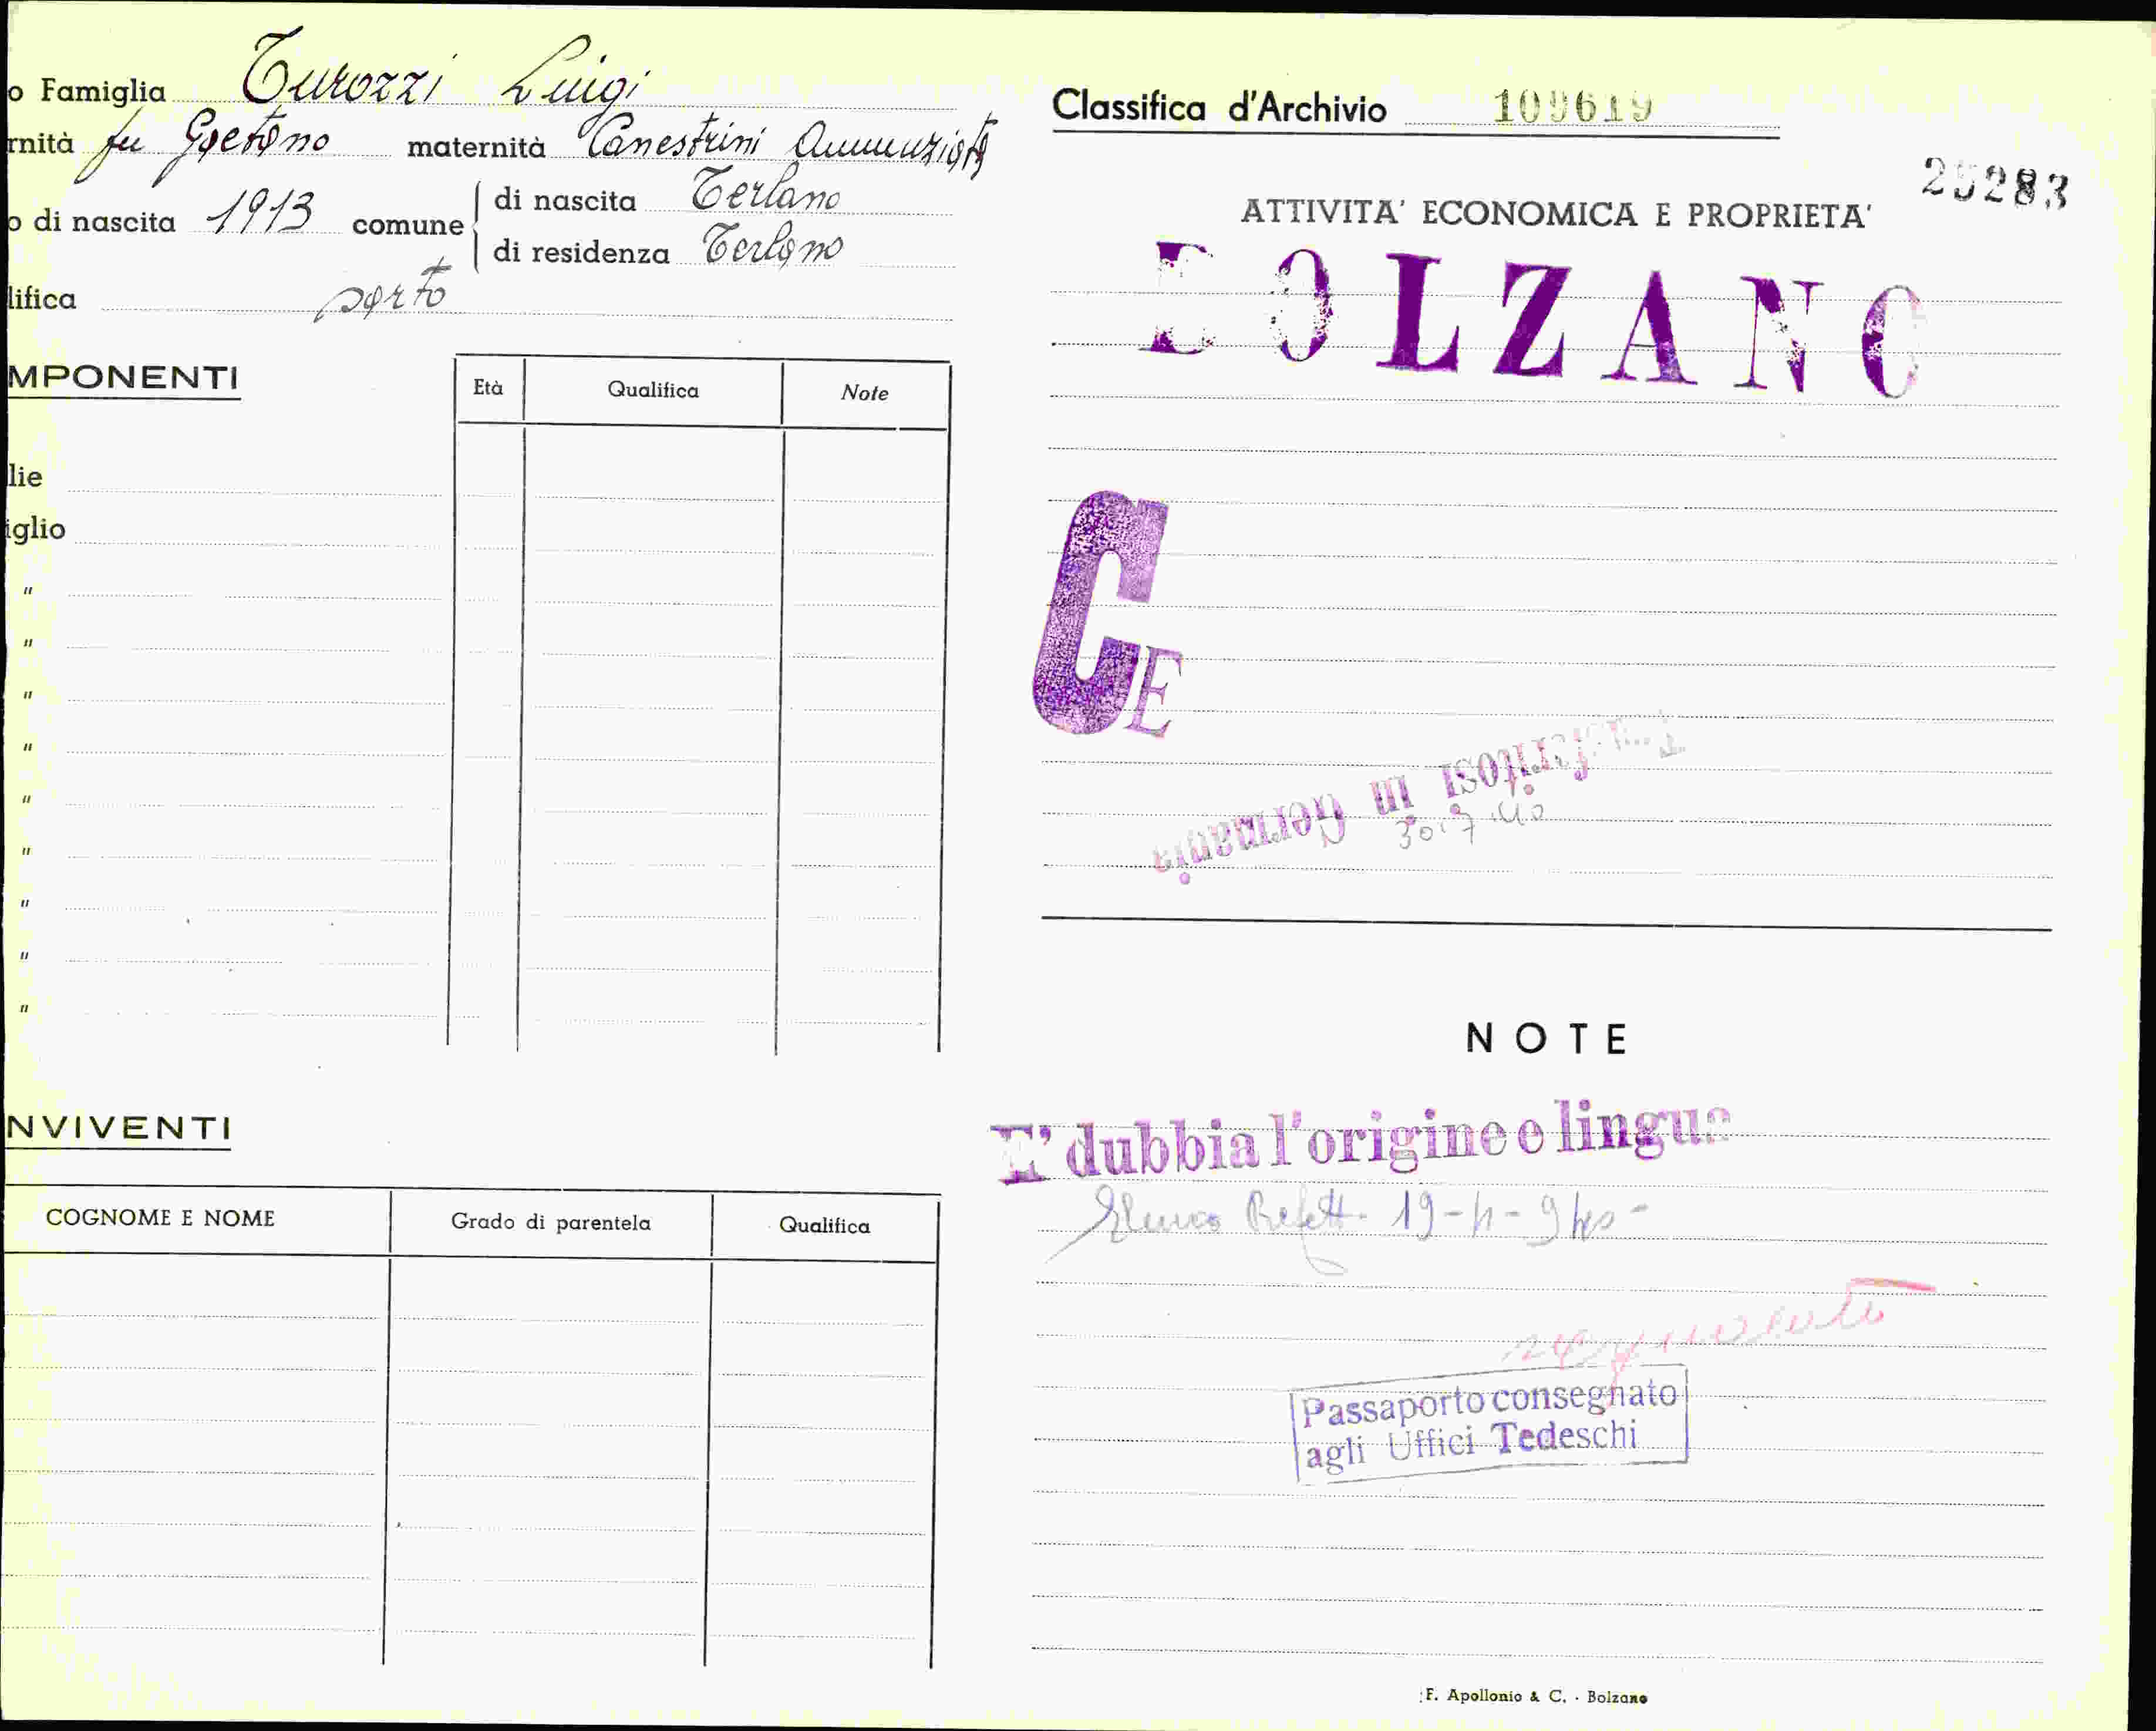 o Famiglia Turozzi Luigi
rnità fu Gaetano maternità Canestrini Annunziata
o di nascita 1913 comune di nascita Terlano
di residenza Terlano
lifica sarto
MPONENTI
Età Qualifica Note
lie
iglio
"
"
"
"
"
"
"
"
"
NVIVENTI
COGNOME E NOME Grado di parentela Qualifica
Classifica d'Archivio 109619
25283
ATTIVITA' ECONOMICA E PROPRIETA'
BOLZANO
CE
Trasferitosi in Germania
30.7.40
NOTE
E' dubbia l'origine e lingua
Elenco Prefett. 19-4-940-
Passaporto consegnato
agli Uffici Tedeschi
F. Apollonio & C. - Bolzano